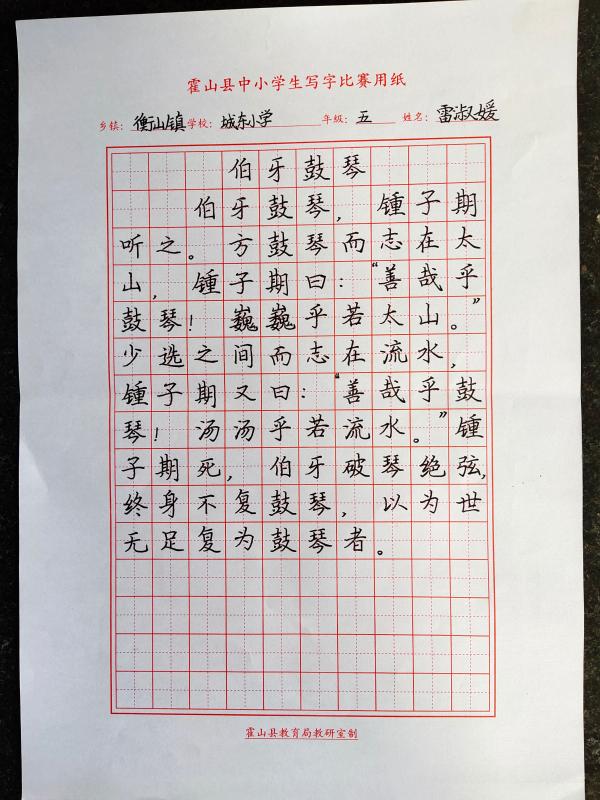 霍山县中小学生写字比赛用纸
乡镇：衡山镇 学校：城东小学 年级：五 姓名：雷淑媛
伯牙鼓琴
伯牙鼓琴，锺子期
听之。方鼓琴而志在太
山，锺子期曰：“善哉乎
鼓琴！巍巍乎若太山。”
少选之间而志在流水，
锺子期又曰：“善哉乎鼓
琴！汤汤乎若流水。”锺
子期死，伯牙破琴绝弦，
终身不复鼓琴，以为世
无足复为鼓琴者。
霍山县教育局教研室制